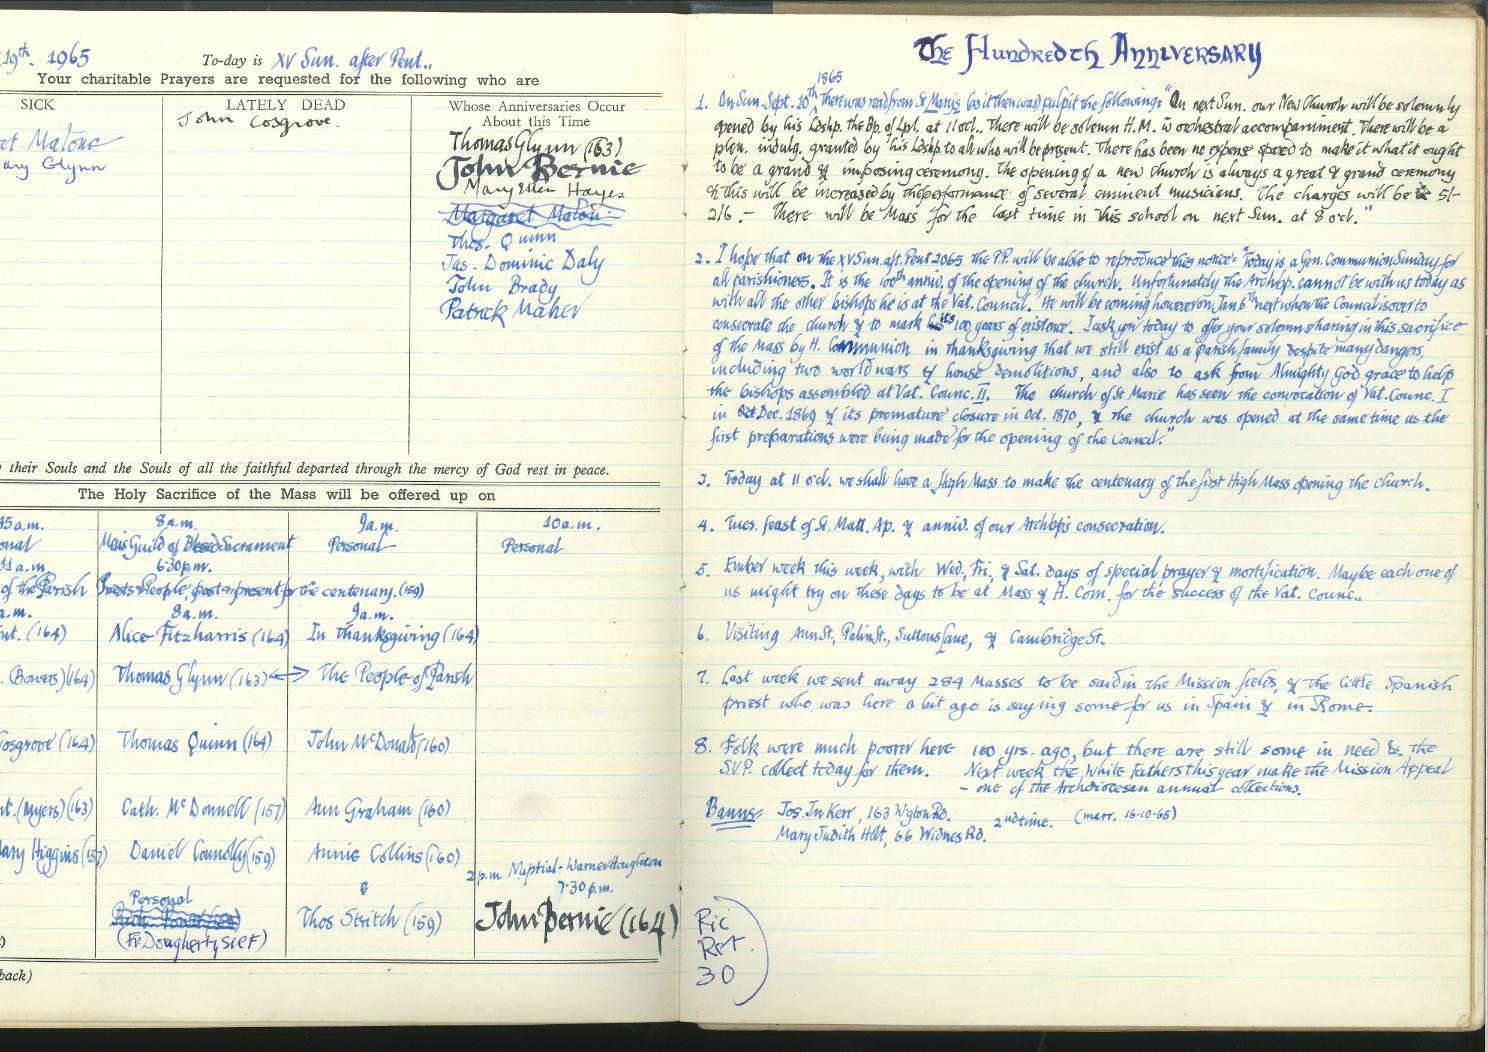 19th. 1965 To-day is XV Sun. after Pent..
Your charitable Prayers are requested for the following who are
SICK
Malone
Glynn
LATELY DEAD
John Cosgrove.
Whose Anniversaries Occur
About this Time
Thomas Glynn (163)
John Bernie
Mary Ellen Hayes
Thos. Quinn
Jas. Dominic Daly
John Brady
Patrick Maher
their Souls and the Souls of all the faithful departed through the mercy of God rest in peace.
The Holy Sacrifice of the Mass will be offered up on
15 a.m. 8 a.m. 9 a.m. 10 a.m.
onal Mens Guild of Blessed Sacrament Personal Personal
11 a.m. 6.30 p.m.
of the Parish Priests & People, past & present for the centenary. (159)
a.m. 8 a.m. 9 a.m.
nt. (164) Alice Fitzharris (164) In thanksgiving (164)
. (Bowers) (164) Thomas Glynn (163) <-> The People of Parish
Cosgrove (164) Thomas Quinn (164) John McDonald (160)
nt. (Myers) (163) Cath. McDonnell (157) Ann Graham (160)
Mary Higgins (157) Daniel Connolly (159) Annie Collins (160)
2 p.m Nuptial - Warner-Houghton
Personal & 7.30 p.m.
Thos Stritch (159) John Bernie (164)
(Fr. Dougherty self)
back)
The Hundredth Anniversary
1865
1. On Sun. Sept. 10th there was read from St Mary's (as it then was) pulpit the following: "On next Sun. our New Church will be solemnly
opened by his Ldshp. the Bp. of Lpl. at 11 ocl. There will be solemn H.M. w orchestral accompaniment. There will be a
plen. indulg. granted by his Ldshp to all who will be present. There has been no expense spared to make it what it ought
to be a grand & imposing ceremony. The opening of a new church is always a great & grand ceremony
& this will be increased by the performance of several eminent musicians. The charges will be 5/-
2/6.- There will be Mass for the last time in this school on next Sun. at 8 ocl."
2. I hope that on the XV Sun. aft. Pent 2065 the P.P. will be able to reproduce this notice: "Today is a Gen. Communion Sunday for
all parishioners. It is the 100th anniv. of the opening of the church. Unfortunately the Archbp. cannot be with us today as
with all the other bishops he is at the Vat. Council. He will be coming however on Jan 6th next when the Council is over to
consecrate the church & to mark its 100 years of existence. I ask you today to offer your solemn sharing in this sacrifice
of the Mass by H. Communion in thanksgiving that we still exist as a parish family despite many dangers,
including two world wars & house demolitions, and also to ask from Almighty God grace to help
the bishops assembled at Vat. Counc. II. The church of St Marie has seen the convocation of Vat. Counc. I
in Dec. 1869 & its premature closure in Oct. 1870, & the church was opened at the same time as the
first preparations were being made for the opening of the Council."
3. Today at 11 ocl. we shall have a High Mass to make the centenary of the first High Mass opening the church.
4. Tues. feast of St. Matt. Ap. & anniv. of our Archbp's consecration.
5. Ember week this week, with Wed., Fri., & Sat. days of special prayer & mortification. Maybe each one of
us might try on these days to be at Mass & H. Com. for the success of the Vat. Counc..
6. Visiting Ann St., Palin St., Suttons Lane, & Cambridge St.
7. Last week we sent away 284 Masses to be said in the Mission fields, & the little Spanish
priest who was here a bit ago is saying some for us in Spain & in Rome.
8. Folk were much poorer here 100 yrs. ago, but there are still some in need &. the
S.V.P. collect today for them. Next week the White Fathers this year make the Mission Appeal
- one of the Archdiocesan annual collections.
Banns: Jos. Jn Kerr, 163 Wgton Rd. 2nd time. (marr. 16-10-65)
Mary Judith Holt, 66 Widnes Rd.
Ric
Ret.
30